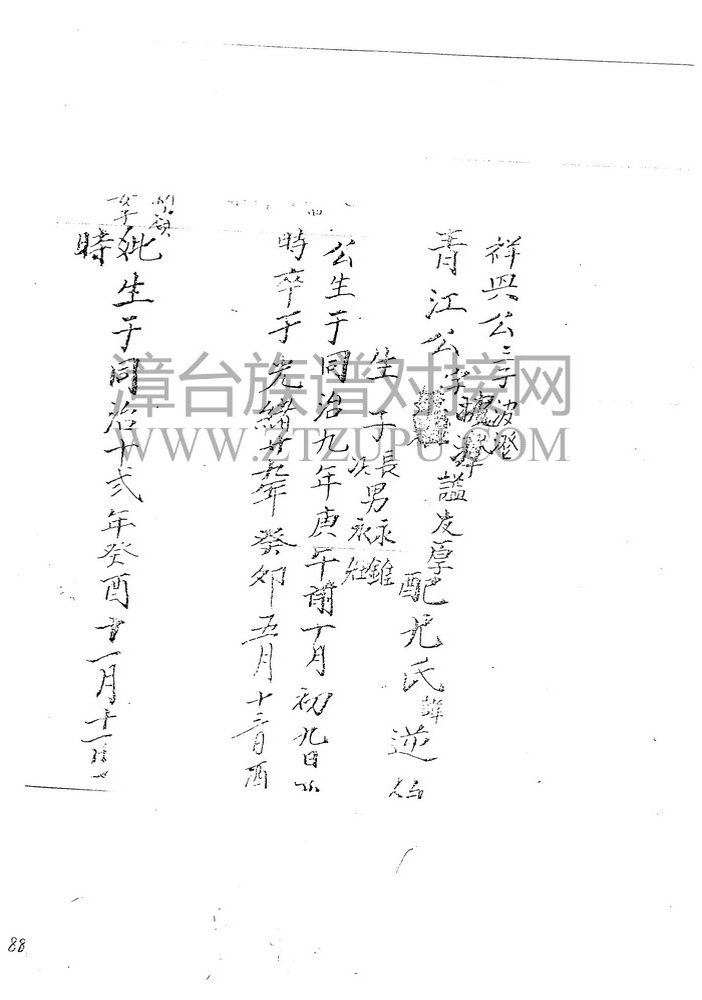 祥興公三子波
青江公字 諱 謚友厚 配尤氏諱逆
生子長男永錐
次永
公生于同治九年庚午 十月初九日
時卒于光緒廿九年癸卯五月十三日酉
女子
妣生于同治十弍年癸酉十一月十一日
時
漳台族谱对接网
WWW.ZTZUPU.COM
88